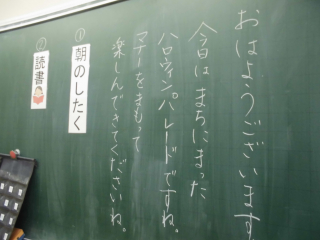 おはようございます
今日はまちにまった
ハロウィンパレードですね。
マナーをまもって
楽しんできてくださいね。
① 朝のしたく
② 読書